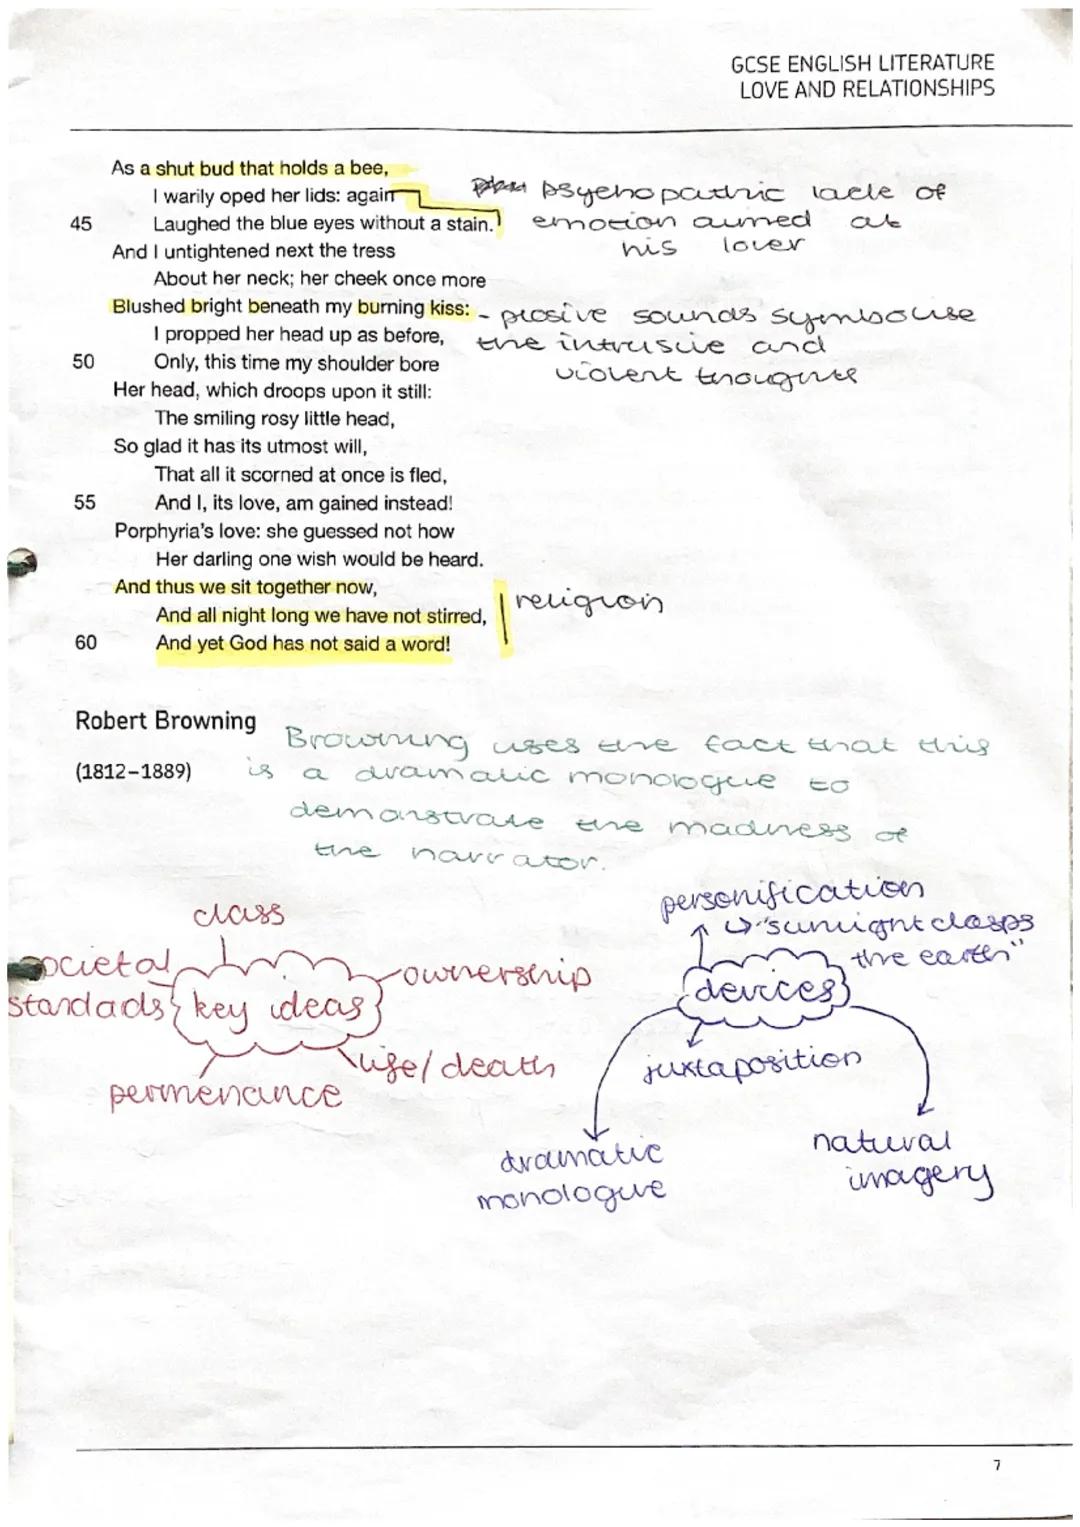 GCSE ENGLISH LITERATURE
LOVE AND RELATIONSHIPS
As a shut bud that holds a bee,
I warily oped her lids: again
45 Laughed the blue eyes without a stain.
And I untightened next the tress
About her neck; her cheek once more
Blushed bright beneath my burning kiss:
I propped her head up as before,
50 Only, this time my shoulder bore
Her head, which droops upon it still:
The smiling rosy little head,
So glad it has its utmost will,
That all it scorned at once is fled,
55 And I, its love, am gained instead!
Porphyria's love: she guessed not how
Her darling one wish would be heard.
And thus we sit together now,
And all night long we have not stirred,
60 And yet God has not said a word!
psychopathic lack of
emotion aimed at
his lover
- plosive sounds symbolise
the intrusive and
violent thoughts
religion
Robert Browning
(1812–1889)
Browning uses the fact that this
is a dramatic monologue to
demonstrate the madness of
the narrator.
class
societal
standads
key ideas
ownership
life/death
permenance
personification
↳ "sunlight clasps
the earth"
devices
juxtaposition
dramatic
monologue
natural
imagery
7